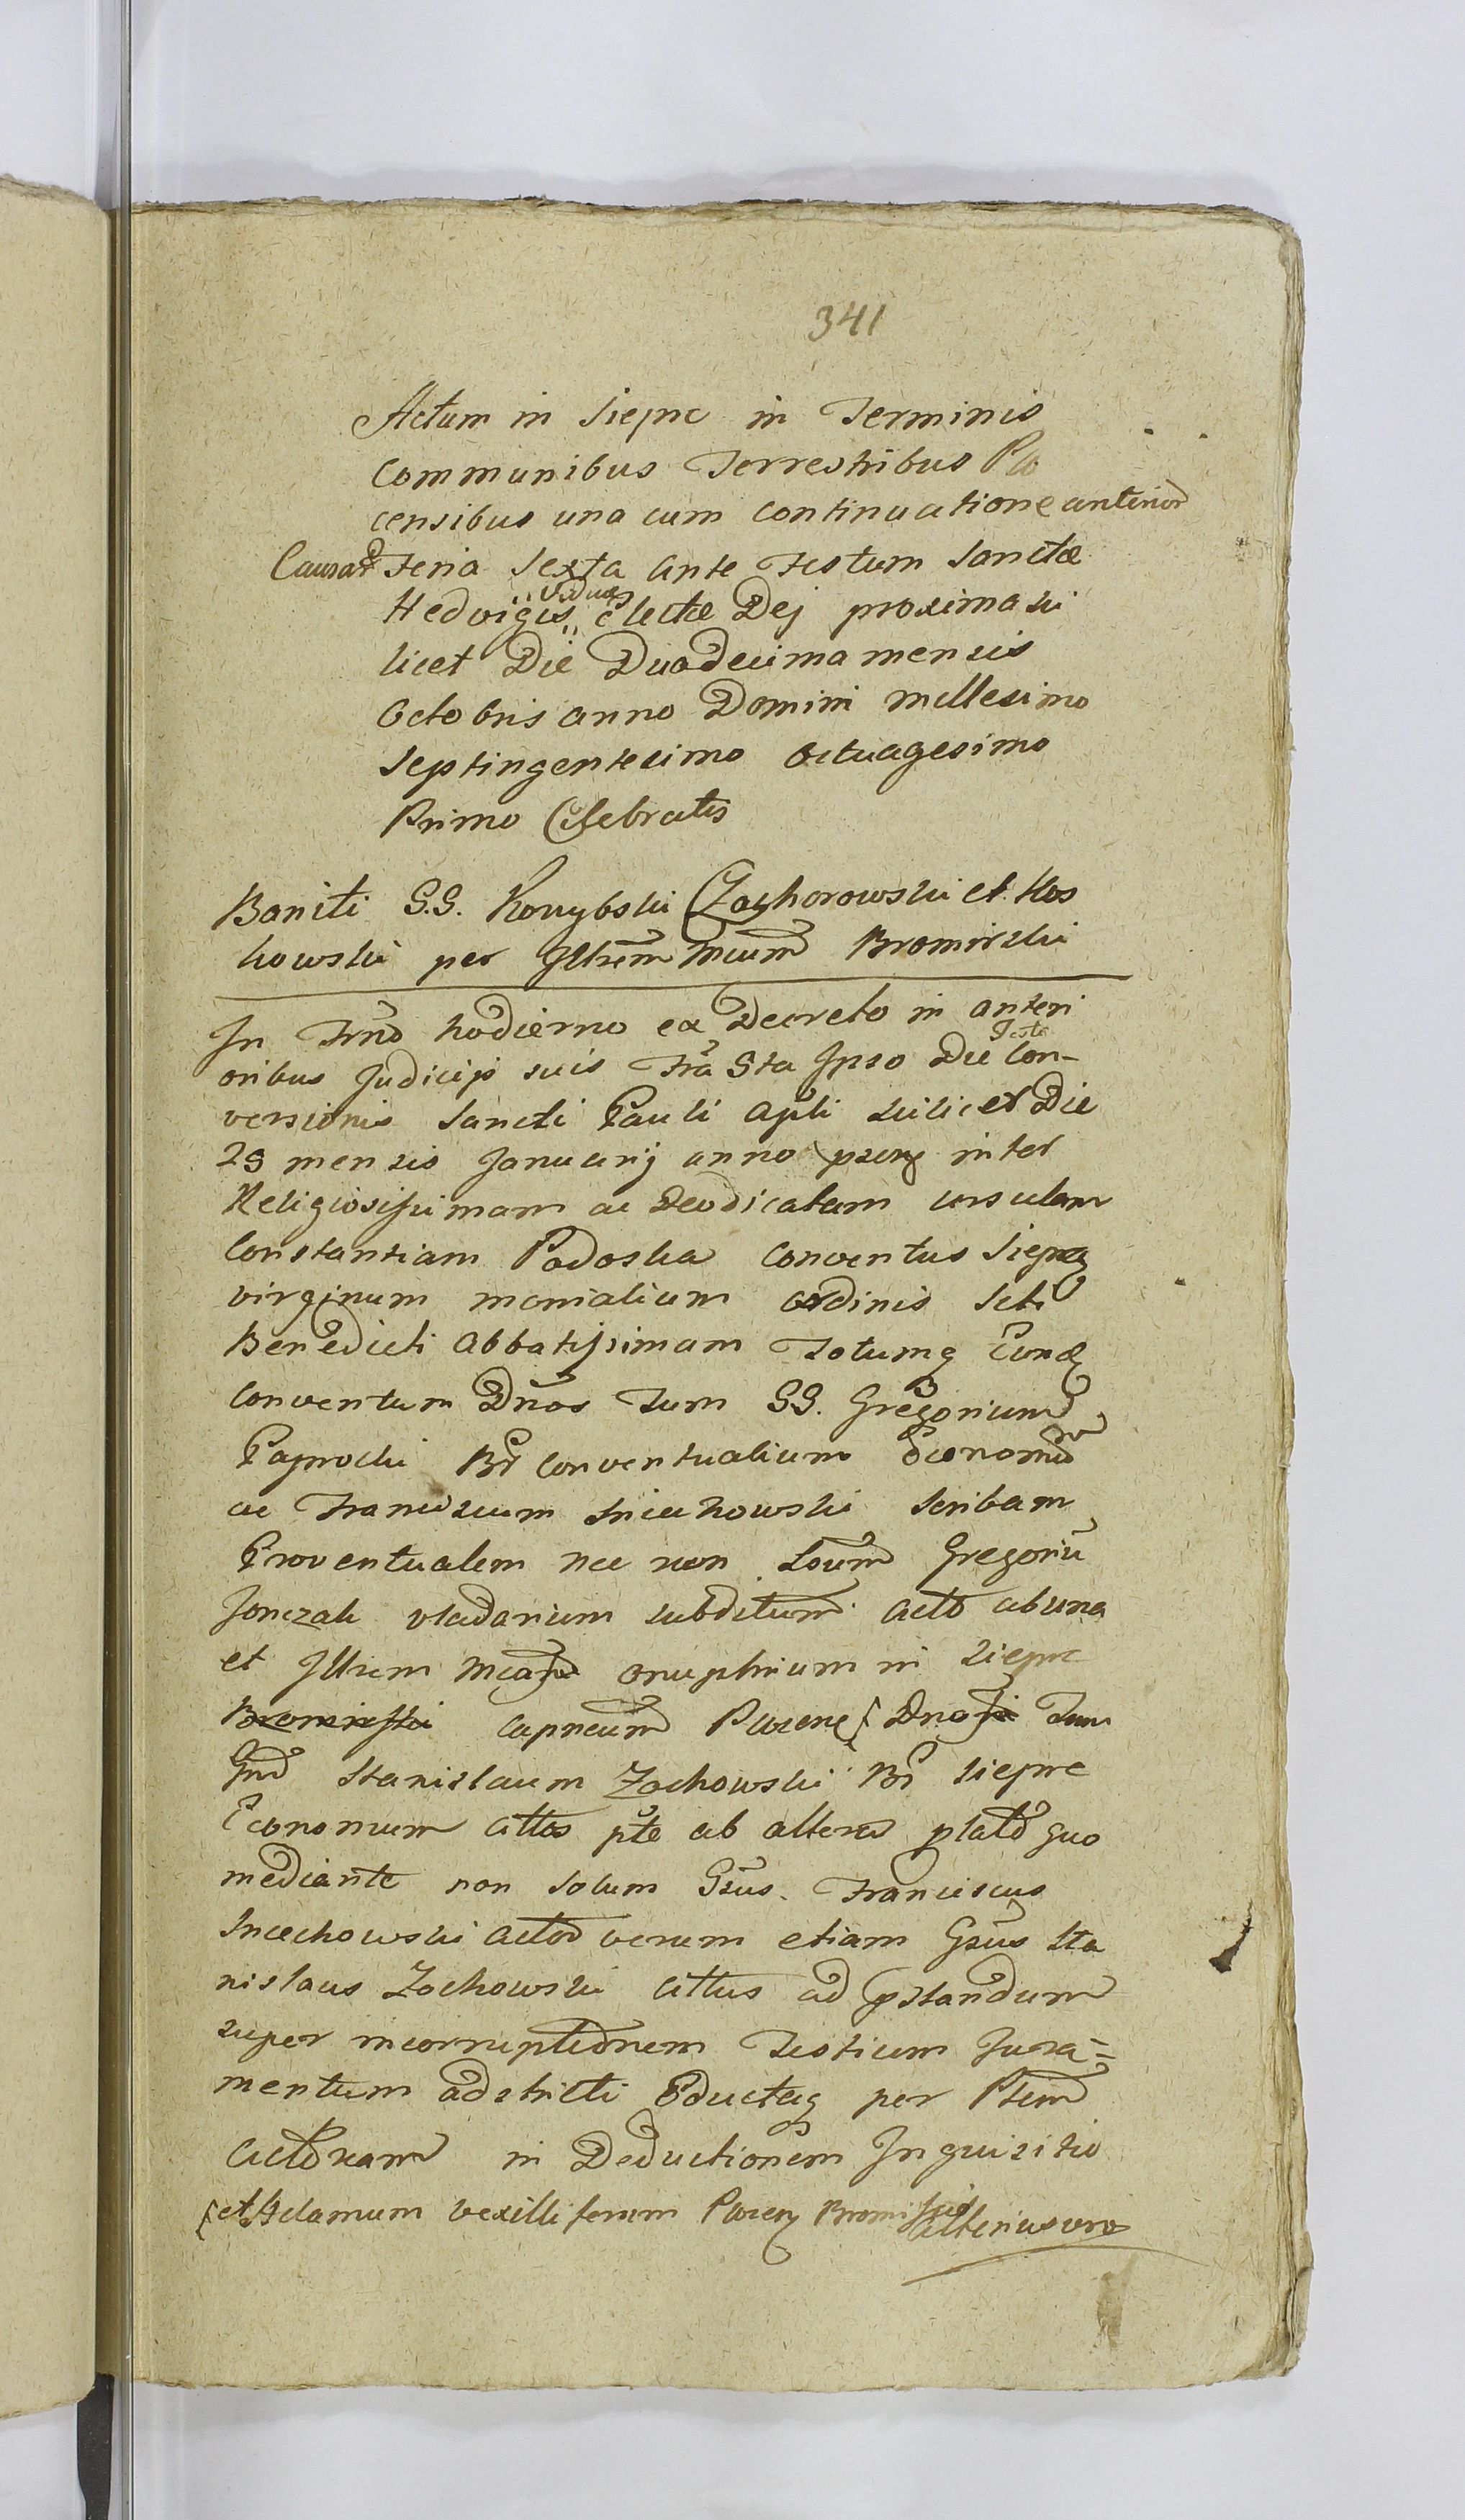 341
Actum in Siepnc in Terminis
Communibus Terrestribus Plo
censibus una cum Continuatione anterior
Causar Feria Sexta ante Festum Sanctæ
Viduæ
Hedvigis electæ Dej proxima sci
licet Die Duodecima mensis
Octobris anno Domini Millesimo
Septingentesimo Octuagesimo
Primo Celebratis
Baniti G.G. Korzybski et Kos
kowski per Illrem Mcum Bromirski
In Trno hodierno ex Decreto in anteri
Festo
oribus Judicijs suis Fra Sta Ipso Die Con-
versionis Sancti Pauli Apli scilicet Die
25 mensis Januarij anno psenq inter
Religiosissimam ac Deodicatam Ursulam
Constantiam Podoska Conventus Siepnq
Virginum monialium Ordinis Scti
Benedicti Abbatissimam Totumq Eundq
Conventum Dnos Tum GG. Gregorium
Paprocki Br Conventualium Œconomu
ac Franciscum Sniechowski Scribam
Proventualem nec non Lbum Gregoriu
Jonczak vladarium subditum Act ab una
et Illrem Mcum Onuphrium in Siepnc
Bromirski Capneum Plocenq Dnos Tum
Gnd Stanislaum Zochowski Br Siepnc
Economum Cittos pte ab altera plato quo
mediante non solum Gsus Franciscus
Sniechowski Actor verum etiam Gsus Sta
nislaus Zochowski Cittus ad pstandum
super incorruptionem Testium Jura=
mentum adstricti Eductaq per Ptem
Actoream in Deductionem Inquisitio
et Adamum Vexilliferum Plocenq Bromirski
alterius vro